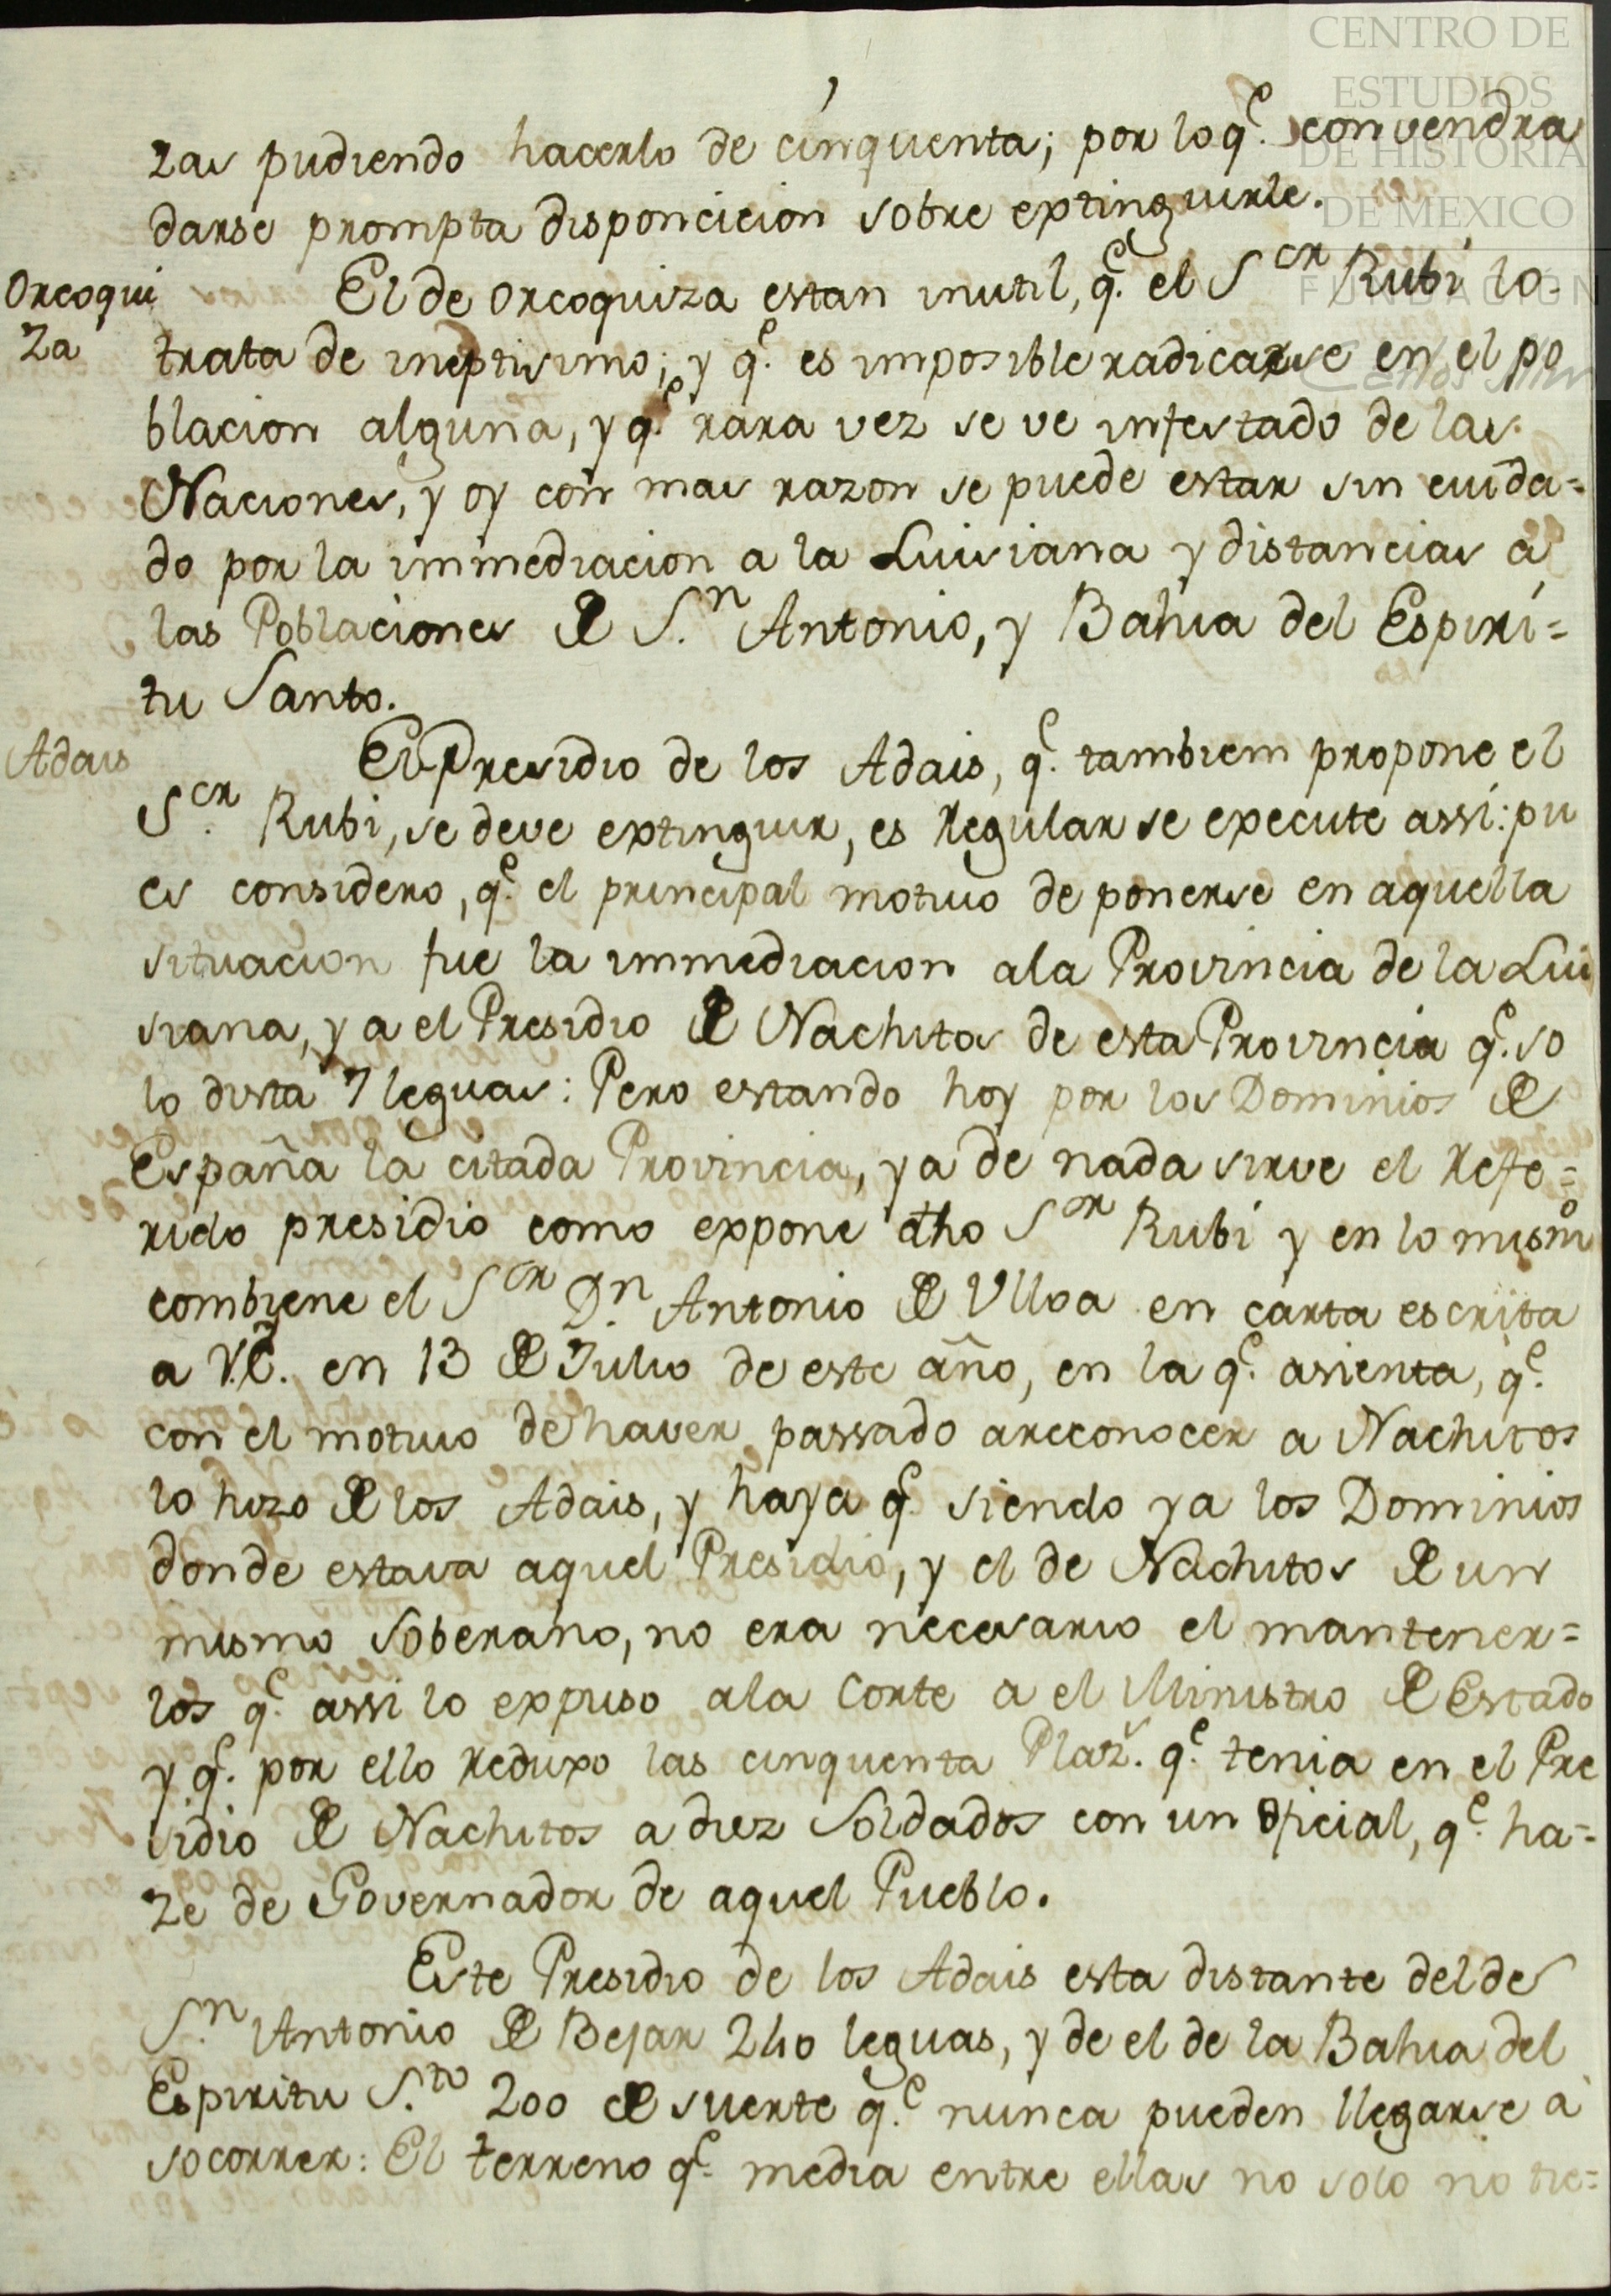 CENTRO DE
ESTUDIOS
DE HISTORIA
DE MEXICO
FUNDACIÓN
zas pudiendo hacerlo de cinquenta; por lo q.e convendra
darse prompta disponcicion sobre extinguirle.
Orcoqui
za
El de Orcoquiza estan inutil, q.e el S.er Rubí lo
trata de ineptisimo; y q.e es imposible radicarse en el po
blacion alguna, y q.e rara vez se ve infestado de las
Naciones, y oy con mas razon se puede estar sin cuida=
do por la immediacion a la Luisiana y distancias a
las Poblaciones de S.n Antonio, y Bahia del Espiri=
tu Santo.
Adais
El Presidio de los Adais, q.e tambiem propone el
S.er Rubi, se deve extinguir, es regular se execute assi: pu
es considero, q.e el principal motivo de ponerse en aquella
situacion fue la immediacion ala Provincia de la Lui
siana, y a el Presidio de Nachitos de esta Provincia q.e so
lo dista 7 leguas: Pero estando hoy por los Dominios de
España la citada Provincia, ya de nada sirve el refe=
rido presidio como expone dho S.or Rubí y en lo mismo
combiene el S.or D.n Antonio de Ulloa en carta escrita
a V.E. en 13 de Julio de este año, en la q.e asienta, q.e
con el motivo de haver passado areconocer a Nachitos
lo hizo de los Adais, y haya q.e siendo ya los Dominios
donde estava aquel Presidio, y el de Nachitos de un
mismo Soberano, no era necesario el mantener=
los q.e assi lo expuso ala Corte a el Ministro de Estado
y q.e por ello reduxo las cinquenta Plaz.s q.e tenia en el Pre
sidio de Nachitos a diez Soldados con un oficial, q.e ha=
ze de Governador de aquel Pueblo.
Este Presidio de los Adais esta distante del de
S.n Antonio de Bejar 240 leguas, y de el de la Bahia del
Espiritu S.to 200 de suerte q.e nunca pueden llegarse à
socorrer: El terreno q.e media entre ellas no solo no tie=